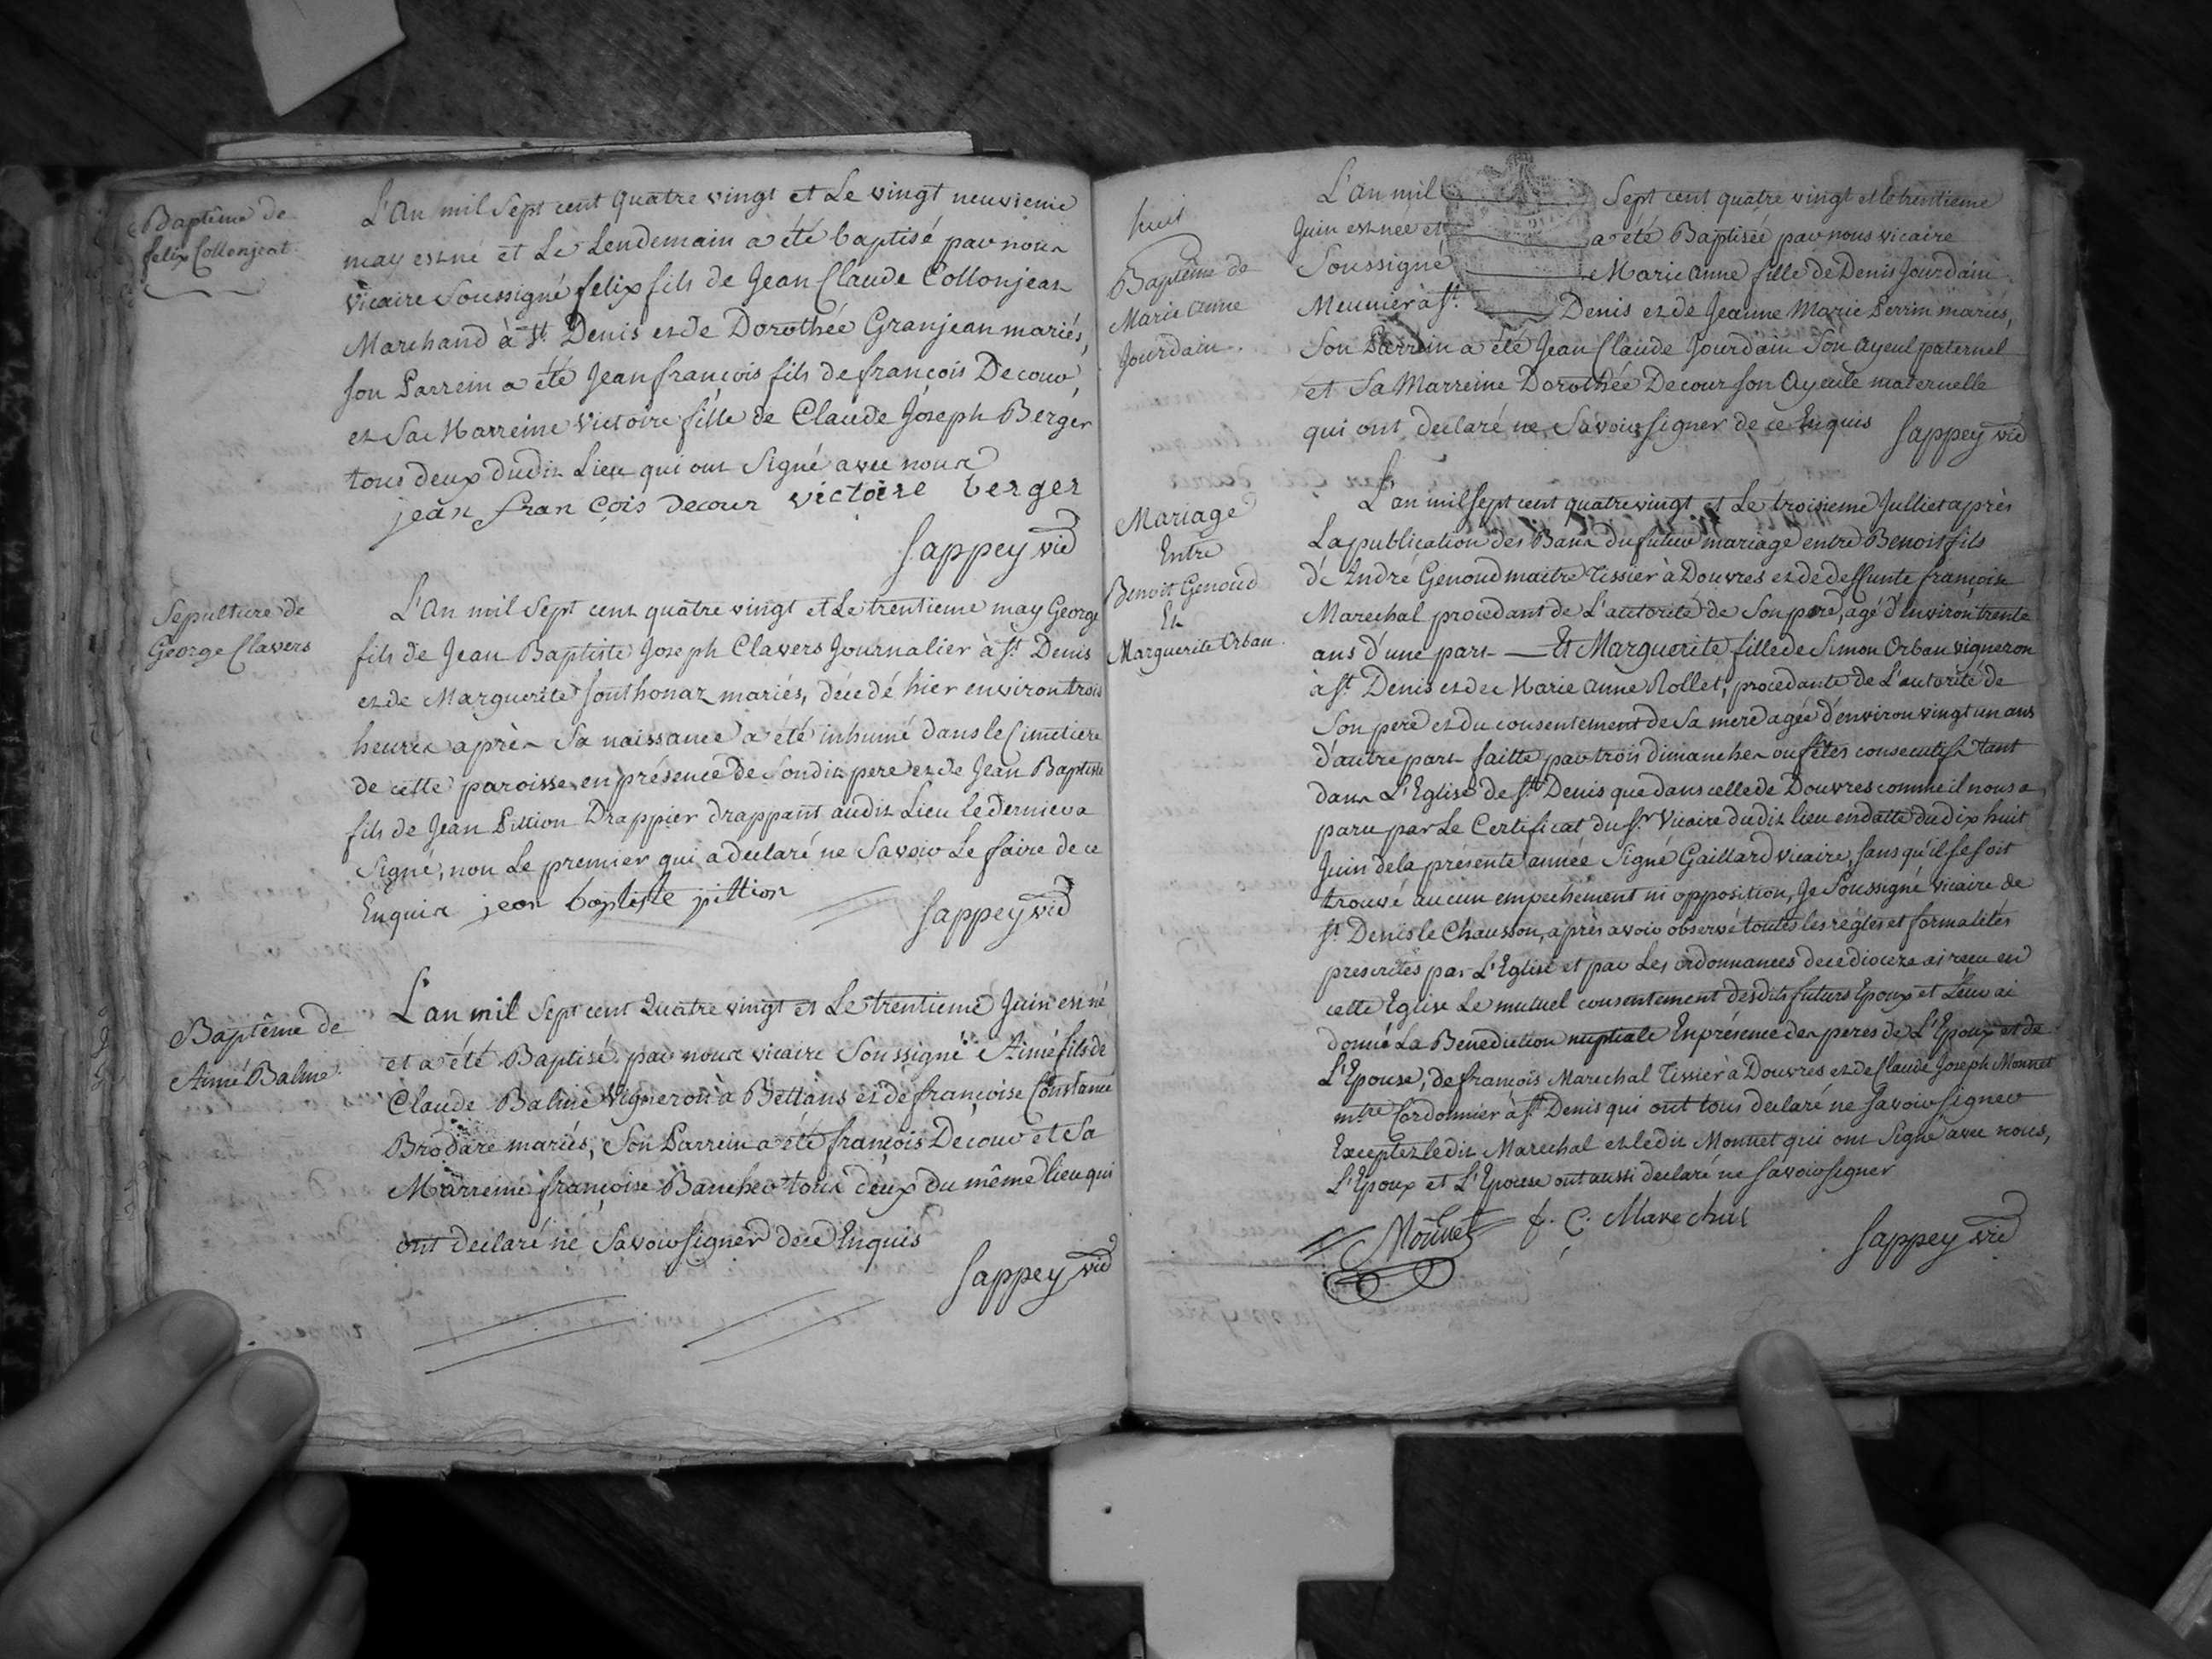 Baptême de
felix Collonjeat
L'an mil Sept cent quatre vingt et Le vingt neuvieme
may est né et Le Lendemain a été baptisé par nous
vicaire Soussigné felix fils de Jean Claude Collonjeat
Marchand à St. Denis et de Dorothée Granjean mariés,
son Parrein a été Jean françois fils de françois Decour
et Sa Marreine Victoire fille de Claude Joseph Berger
tous deux dudit Lieu qui ont Signé avec nous
jean fran çois decour victoire berger
Sappey vic
Sepulture de
George Clavers
L'an mil Sept cent quatre vingt et Le trentieme may George
fils de Jean Baptiste Joseph Clavers Journalier à St. Denis
et de Marguerite Jonthonaz mariés, décedé hier environ trois
heures après Sa naissance a été inhumé dans le Cimetiere
de cette paroisse en présence de Sondit pere et de Jean Baptiste
fils de Jean Pittion Drappier drappant audit Lieu le dernier a
Signé, non Le premier qui a declaré ne Savoir Le faire de ce
Enquis jean baptiste pittion
Sappey vic
Baptême de
Aimé Balme
L'an mil Sept cent Quatre vingt et Le trentieme Juin est né
et a été Baptisé par nous vicaire Soussigné Aimé fils de
Claude Balme Vigneron à Bettans et de françoise Constance
Brodare mariés, Son Parrein a été françois Decour et Sa
Marreine françoise Bancher tous deux du même lieu qui
ont declaré ne Savoir signer de ce Enquis
Sappey vic
huit
Baptême de
Marie Anne
Jourdain
L'an mil Sept cent quatre vingt et le trentieme
Juin est née et a été Baptisée par nous vicaire
Soussigné Marie Anne fille de Denis Jourdain
Meunier à St. Denis et de Jeanne Marie Perrin mariés,
Son Parrein a été Jean Claude Jourdain Son ayeul paternel
et Sa Marreine Dorothée Decour son Ayeule maternelle
qui ont declaré ne Savoir signer de ce Enquis
Sappey vic
Mariage
Entre
Benoit Genoud
Et
Marguerite Orban
L'an mil sept cent quatre vingt et Le troisieme Julliet après
La publication des Bans du futur mariage entre Benoit fils
d'André Genoud maitre Tissier à Douvres et de deffunte françoise
Marechal procedant de L'autorité de Son pere, agé d'environ trente
ans d'une part Et Marguerite fille de Simon Orban vigneron
à St. Denis et de Marie Anne Rollet, procedante de L'autorité de
Son pere et du consentement de Sa mere agée d'environ vingt un ans
d'autre part faitte par trois dimanches ou fêtes consecutifs tant
dans L'Eglise de St. Denis que dans celle de Douvres comme il nous a
paru par Le Certificat du Sr. Vicaire dudit lieu en datte du dix huit
Juin de la présente année Signé Gaillard vicaire, sans qu'il se soit
trouvé aucun empechement ni opposition, Je Soussigné vicaire de
St. Denis le Chausson, après avoir observé toutes les regles et formalités
prescrites par L'Eglise et par Les ordonnances de ce dioceze ai reçu en
cette Eglise Le mutuel consentement desdits futurs Epoux et Leur ai
donné La Benediction nuptiale En présence des peres de L'Epoux et de
L'Epouse, de françois Marechal Tissier à Douvres et de Claude Joseph Monnet
mtre Cordonnier à St. Denis qui ont tous declaré ne savoir signer
Excepté ledit Marechal et ledit Monnet qui ont Signé avec nous,
L'Epoux et L'Epouse ont aussi declaré ne savoir signer
Monnet f. C. Marechal
Sappey vic